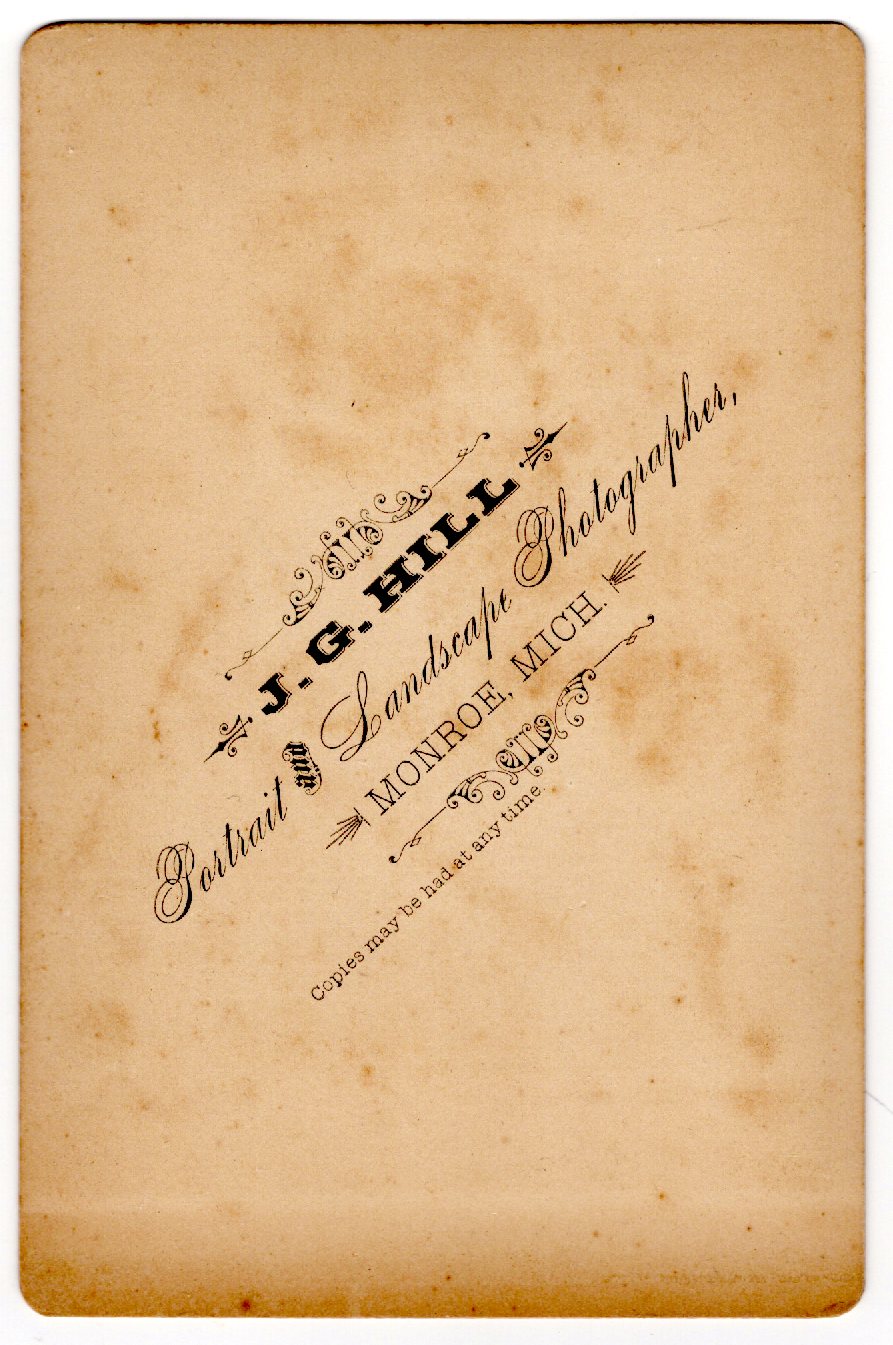 J. G. HILL
Portrait and Landscape Photographer,
MONROE, MICH.
Copies may be had at any time.